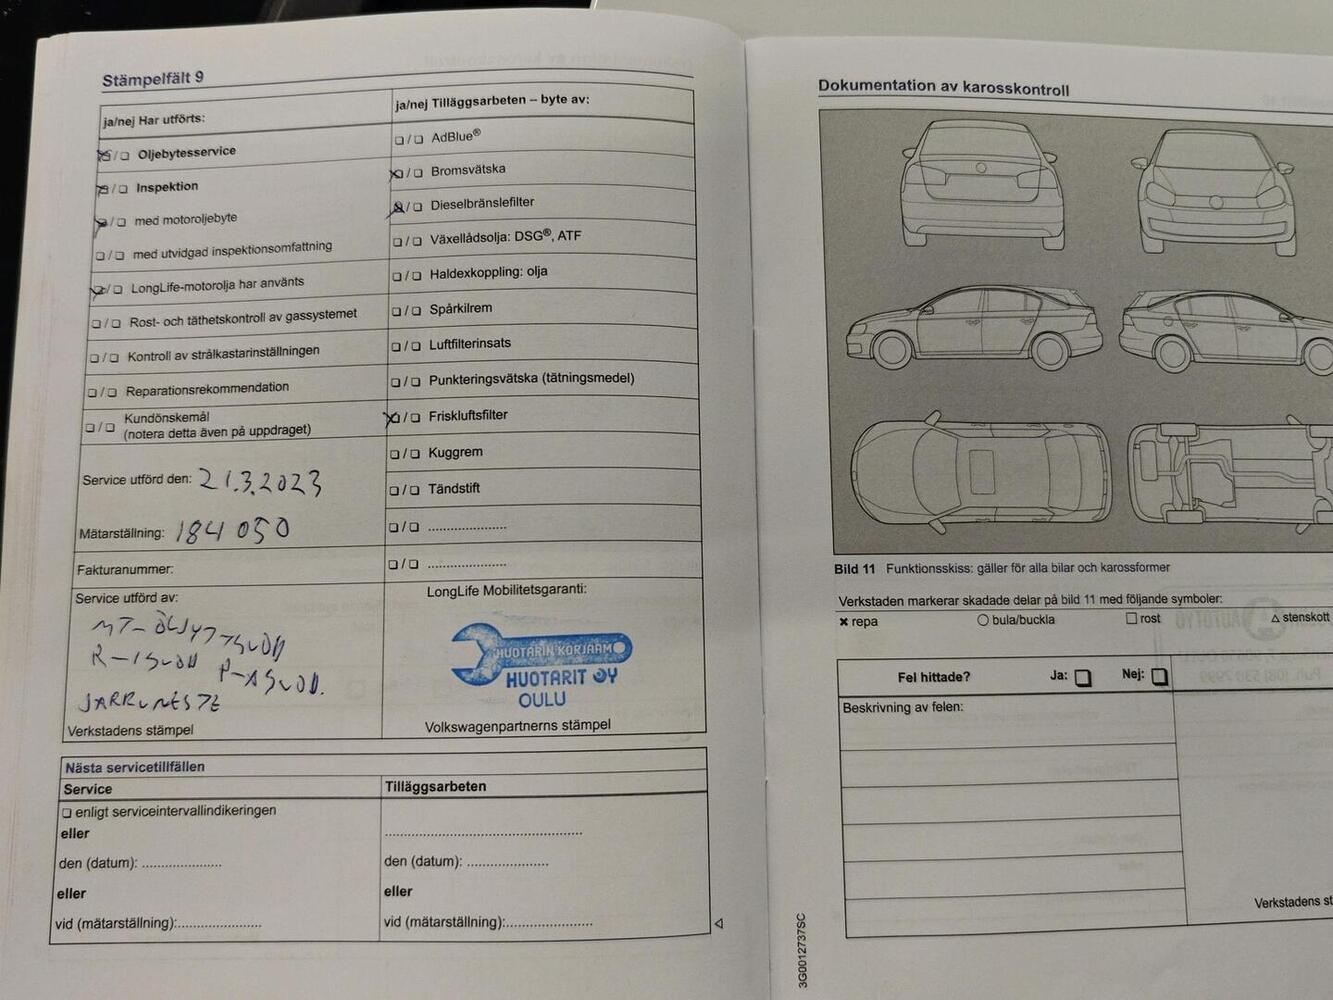 Stämpelfält 9
ja/nej Har utförts:
❏/❏ Oljebytesservice
❏/❏ Inspektion
❏/❏ med motoroljebyte
❏/❏ med utvidgad inspektionsomfattning
❏/❏ LongLife-motorolja har använts
❏/❏ Rost- och täthetskontroll av gassystemet
❏/❏ Kontroll av strålkastarinställningen
❏/❏ Reparationsrekommendation
❏/❏ Kundönskemål
(notera detta även på uppdraget)
Service utförd den: 21.3.2023
Mätarställning: 184 050
Fakturanummer:
Service utförd av:
JARRUNESTE
Verkstadens stämpel
ja/nej Tilläggsarbeten – byte av:
❏/❏ AdBlue®
❏/❏ Bromsvätska
❏/❏ Dieselbränslefilter
❏/❏ Växellådsolja: DSG®, ATF
❏/❏ Haldexkoppling: olja
❏/❏ Spårkilrem
❏/❏ Luftfilterinsats
❏/❏ Punkteringsvätska (tätningsmedel)
❏/❏ Friskluftsfilter
❏/❏ Kuggrem
❏/❏ Tändstift
❏/❏ ....................
❏/❏ ....................
LongLife Mobilitetsgaranti:
HUOTARIN KORJAAMO
HUOTARIT OY
OULU
Volkswagenpartnerns stämpel
Nästa servicetillfällen
Service
❏ enligt serviceintervallindikeringen
eller
den (datum): ....................
eller
vid (mätarställning):.....................
Tilläggsarbeten
..................................................
den (datum): ....................
eller
vid (mätarställning):.....................
Dokumentation av karosskontroll
Bild 11 Funktionsskiss: gäller för alla bilar och karossformer
Verkstaden markerar skadade delar på bild 11 med följande symboler:
✖ repa ○ bula/buckla □ rost △ stenskott
Fel hittade? Ja: ❏ Nej: ❏
Beskrivning av felen:
Verkstadens st
3G0012737SC